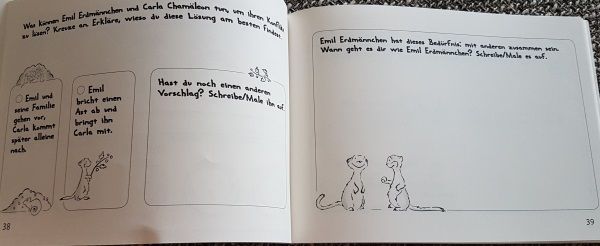 Was können Emil Erdmännchen und Carla Chamäleon tun, um ihren Konflikt
zu lösen? Kreuze an. Erkläre, wieso du diese Lösung am besten findest.
Emil und
seine Familie
gehen vor,
Carla kommt
später alleine
nach.
Emil
bricht einen
Ast ab und
bringt ihn
Carla mit.
Hast du noch einen anderen
Vorschlag? Schreibe/Male ihn auf.
38
Emil Erdmännchen hat dieses Bedürfnis: mit anderen zusammen sein.
Wann geht es dir wie Emil Erdmännchen? Schreibe/Male es auf.
39